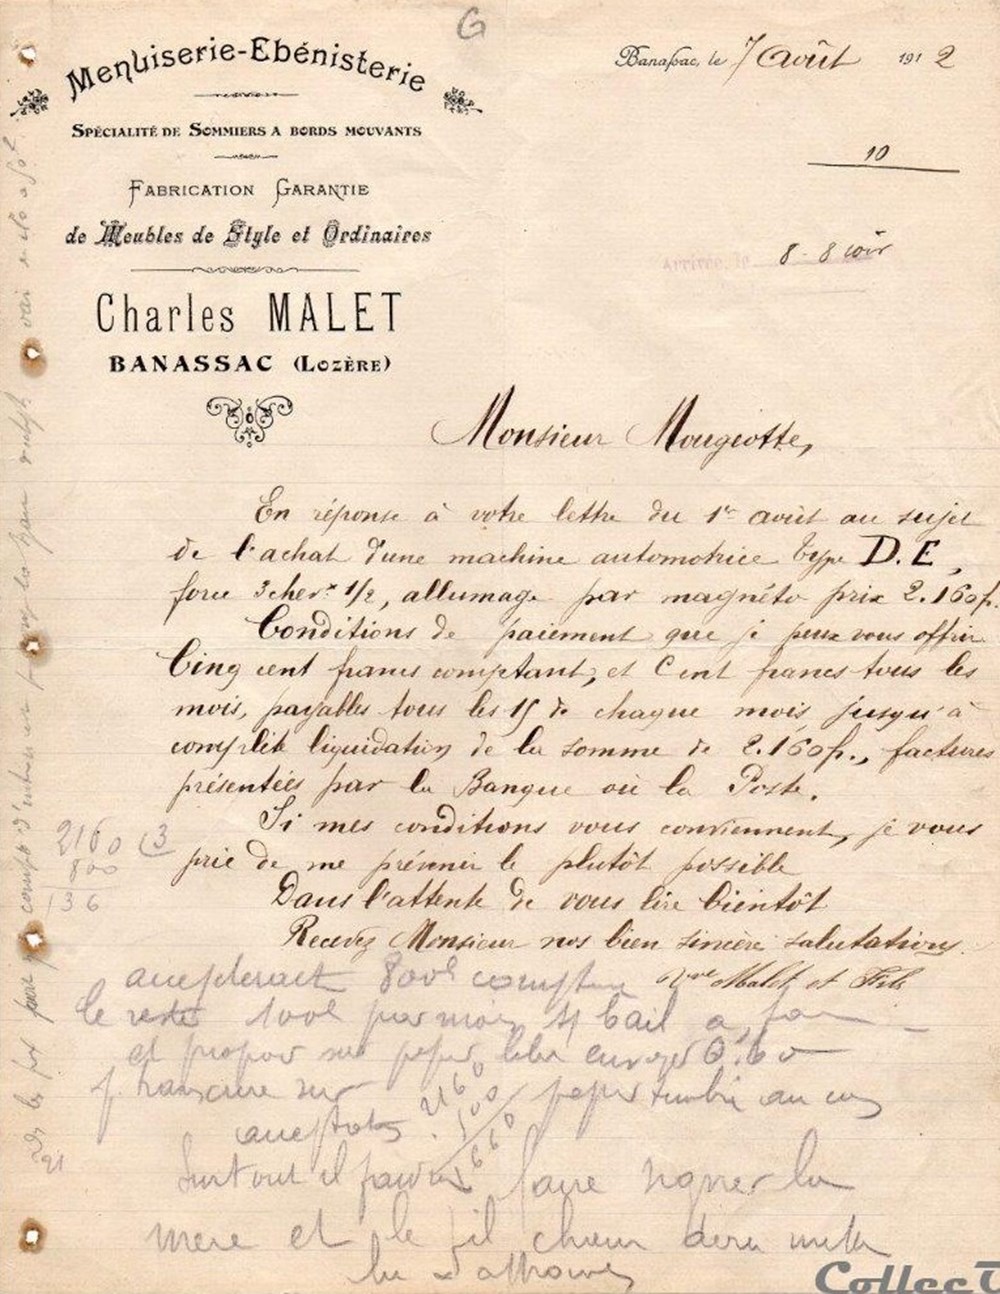 G
Menuiserie-Ebénisterie
Spécialité de Sommiers a bords mouvants
Fabrication Garantie
de Meubles de Style et Ordinaires
Charles MALET
BANASSAC (Lozère)
Banassac, le 7 Août 1912
10
Arrivée le 8 - 8 soir
Monsieur Mougeotte,
En réponse à votre lettre du 1er août au sujet
de l'achat d'une machine automotrice type D.E,
force 3 chevx 1/2, allumage par magnéto prix 2.160f.
Conditions de paiement que je peux vous offrir
Cinq cent francs comptant, et Cent francs tous les
mois, payables tous les 15 de chaque mois, jusqu'à
complète liquidation de la somme de 2.160f., factures
présentées par la Banque où la Poste.
Si mes conditions vous conviennent, je vous
prie de me prévenir le plutôt possible
Dans l'attente de vous lire bientôt
Recevez Monsieur nos bien sincère salutations.
Vve Malet et Fils
2160 (3
800
136
accepterait 800f comptant
le reste 100f par mois
et propos sur papier
sur papier timbré au cas
2160
500
1660
Surtout il faudra faire signer la
mère et le fil chacun devra mettre
21
Collec